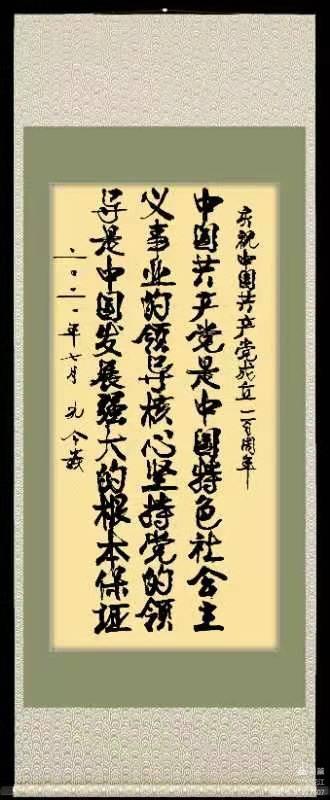 庆祝中国共产党成立一百周年
中国共产党是中国特色社会主
义事业的领导核心坚持党的领
导是中国发展强大的根本保证
二〇二一年七月 孔令